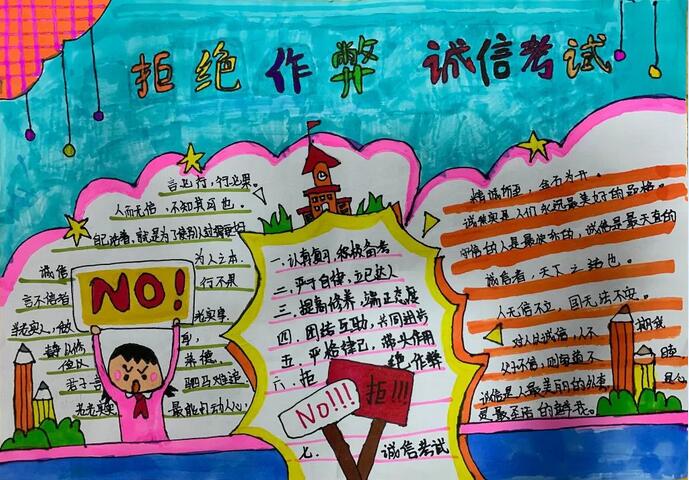 拒绝作弊 诚信考试
言必行，行必果。
人而无信，不知其可也。
自己活着，就是为了使别人过得更好
诚信 为人之本.
言不信者 行不果
老实人，做 老实事
君子一 驷马难追.
最能打动人心,
NO!
一.认真复习,积极备考
二.严于自律，立己达人
三.提高修养，端正态度
四.团结互助，共同进步
五.严格律己，带头作用
六.拒绝作弊
七. 诚信考试
NO!!!
拒!!!
精诚所至，金石为开.
诚实是人们永远最美好的品格.
守信的人是最快乐的，诚信是最天真的
诚信者，天下之结也.
人无信不立，国无法不安.
对人以诚信，人不 欺我
诚信是人最美丽的外套,
是最圣洁的鲜花。